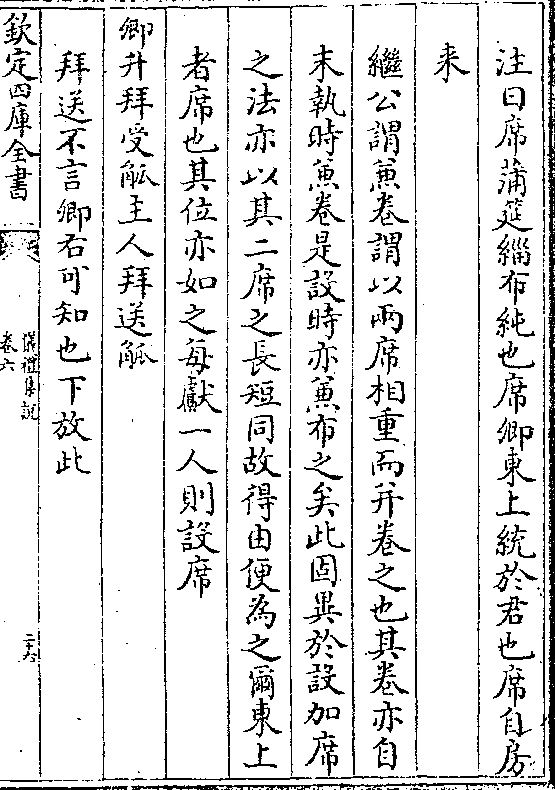 注曰席蒲筵緇布純也席卿東上統於君也席自房
来
繼公謂兼卷謂以兩席相重而并卷之也其卷亦自
末執時兼卷是設時亦兼布之矣此固異於設加席
之法亦以其二席之長短同故得由便為之爾東上
者席也其位亦如之每獻一人則設席
卿升拜受觚主人拜送觚
拜送不言卿右可知也下放此
欽定四庫全書
儀禮集說
卷六
二十六